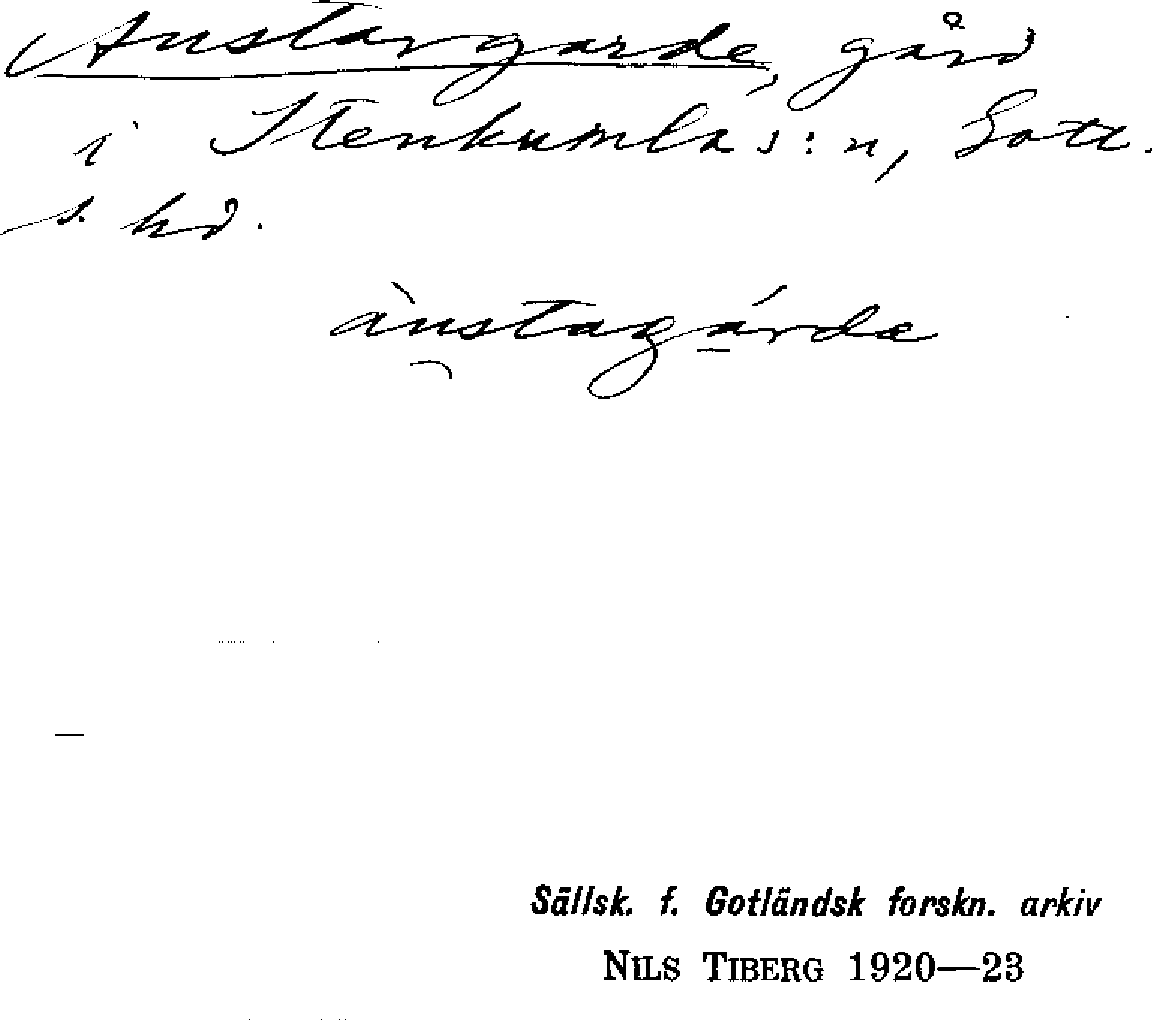 Austargarde, gård
i Stenkumla s:n, Gotl.
s. hd.
àustagárde
Sällsk. f. Gotländsk forskn. arkiv
NILS TIBERG 1920—23